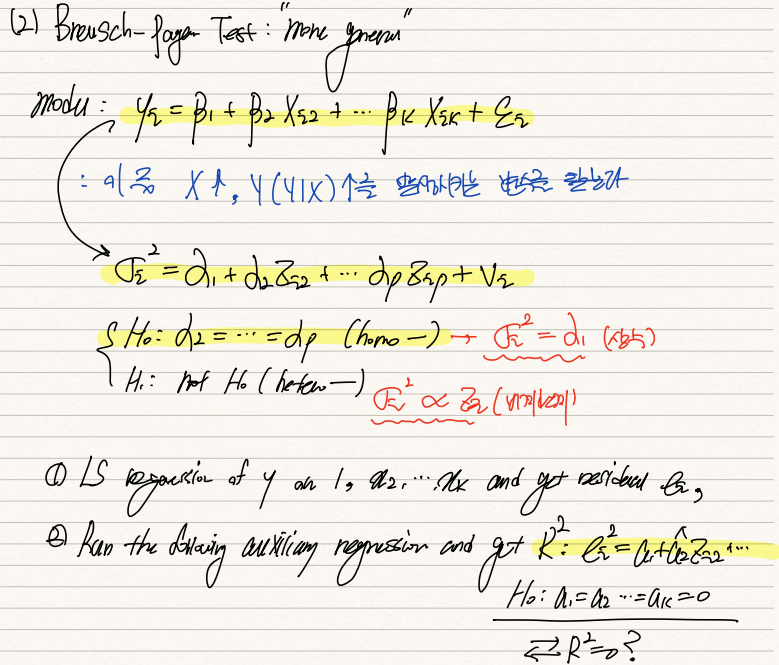 (2) Breusch-Pagan Test: "more general"
model: yᵢ = β₁ + β₂ Xᵢ₂ + ⋯ βκ Xᵢκ + εᵢ
: 이 중 X↑, V(Y|X)↑를 발생시키는 변수를
σᵢ² = α₁ + α₂Zᵢ₂ + ⋯ αp Zᵢp + Vᵢ
H₀: α₂ = ⋯ = αp (homo—) → σᵢ² = α₁ (상수)
H₁: not H₀ (hetero—) σᵢ² ∝ Zᵢ
① LS regression of y on 1, x₂, ⋯ xκ and get residual eᵢ,
② Run the following auxiliary regression and get R²: eᵢ² = a₁+a₂Zᵢ₂+⋯
H₀: a₁=a₂ ⋯=aκ=0
⇄ R²=0?